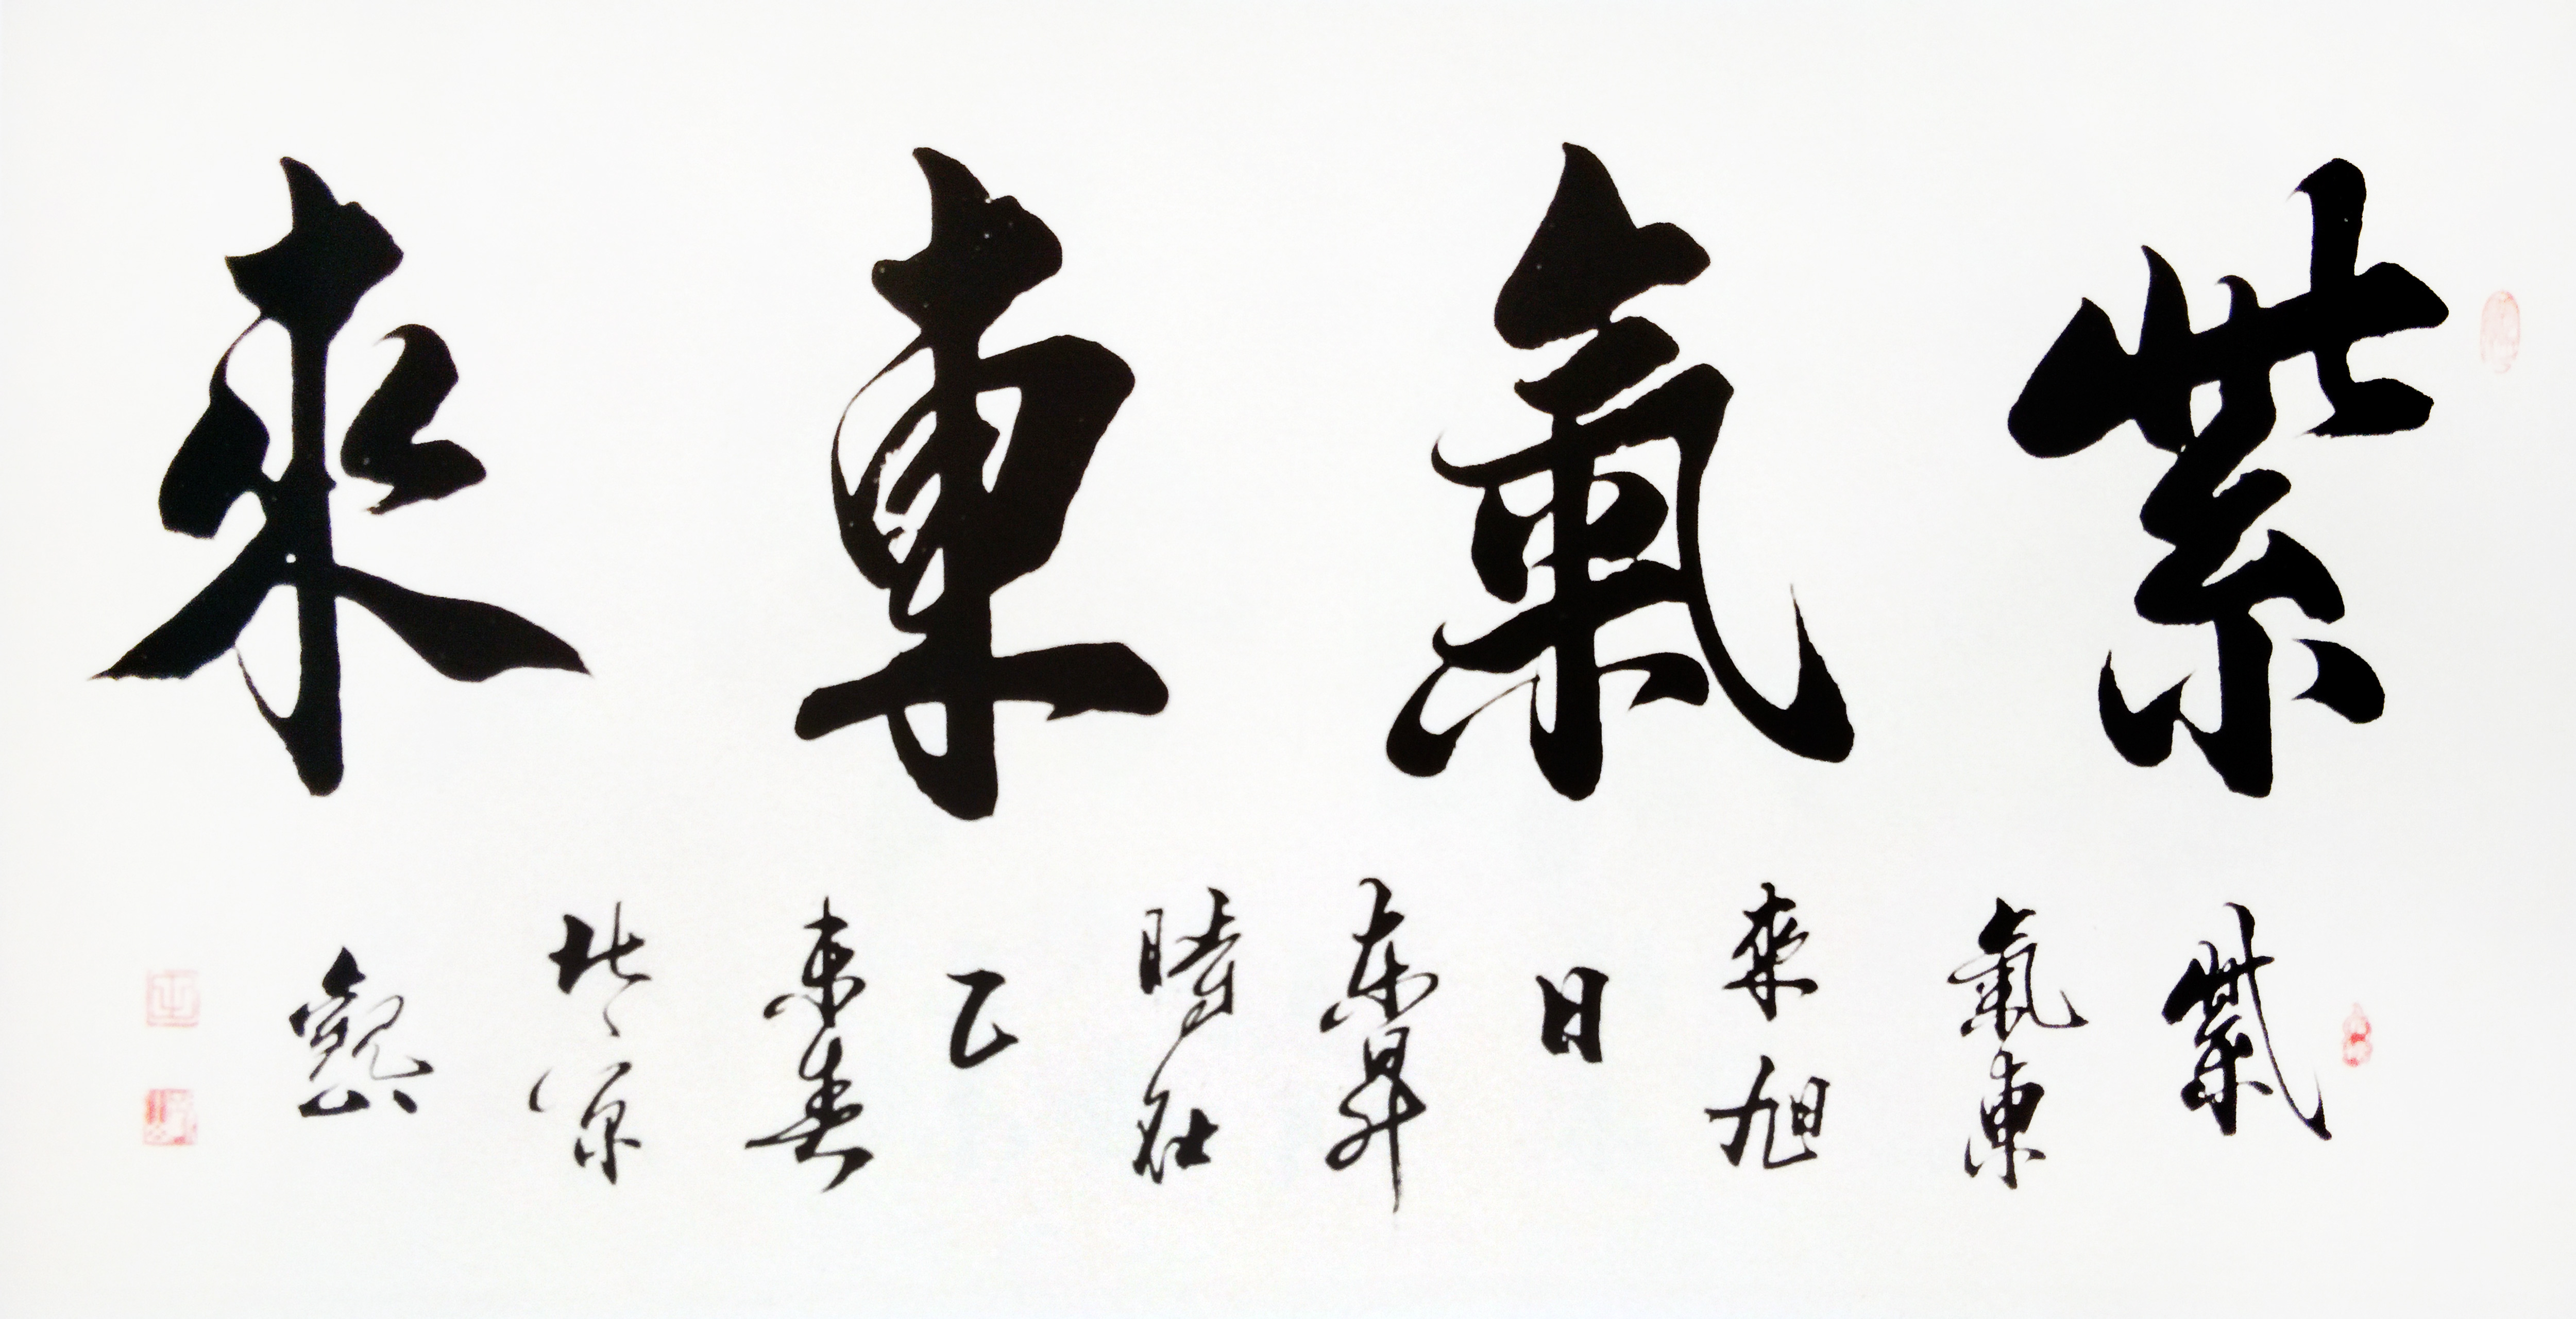 紫氣東來
紫
氣東
來旭
日
东昇
時在
乙
未春
北京